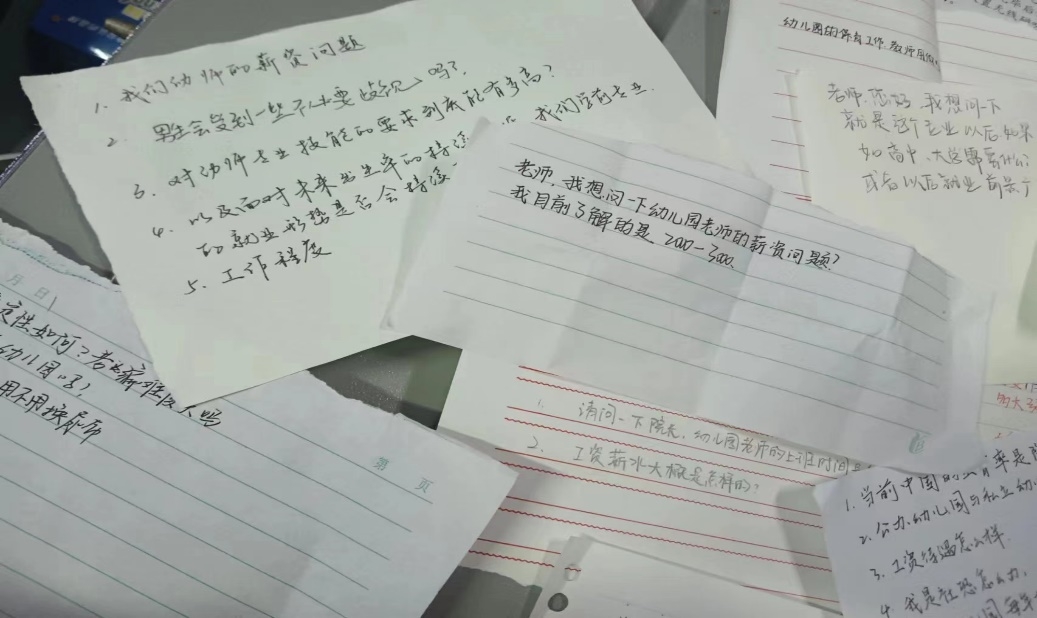 1. 我们幼师的薪资问题
2. 男生会受到一些不必要歧视吗？
3. 对幼师专业技能的要求到底能有多高？
4. 以及面对未来出生率的持续 我们当前专业
的就业形势是否会持续
5. 工作程度
老师，我想问一下幼儿园老师的薪资问题？
我目前了解的是 200-3000
幼儿园的保育工作 教师
老师，您好，我想问一下
就是这个专业以后如果
如高中、大学需要什么
或者以后就业前景
月 日
性如何？
幼儿园
用不用换尿布
第 页
1. 请问一下院长，幼儿园老师的上班时间
2. 工资薪水大概是怎样的？
1. 当前中国的 率是
2. 公办幼儿园与私立幼
3. 工资待遇怎么样
4. 我是社恐怎么办，